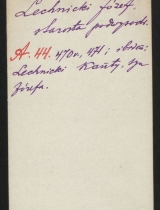 Lechnicki Józef.
starosta
A. 44. 470v, 471; ibid;
Lechnicki Kanty, syn
Józefa.